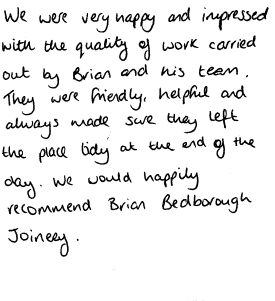 We were very happy and impressed
with the quality of work carried
out by Brian and his team.
They were friendly, helpful and
always made sure they left
the place tidy at the end of the
day. We would happily
recommend Brian Bedborough
Joinery.